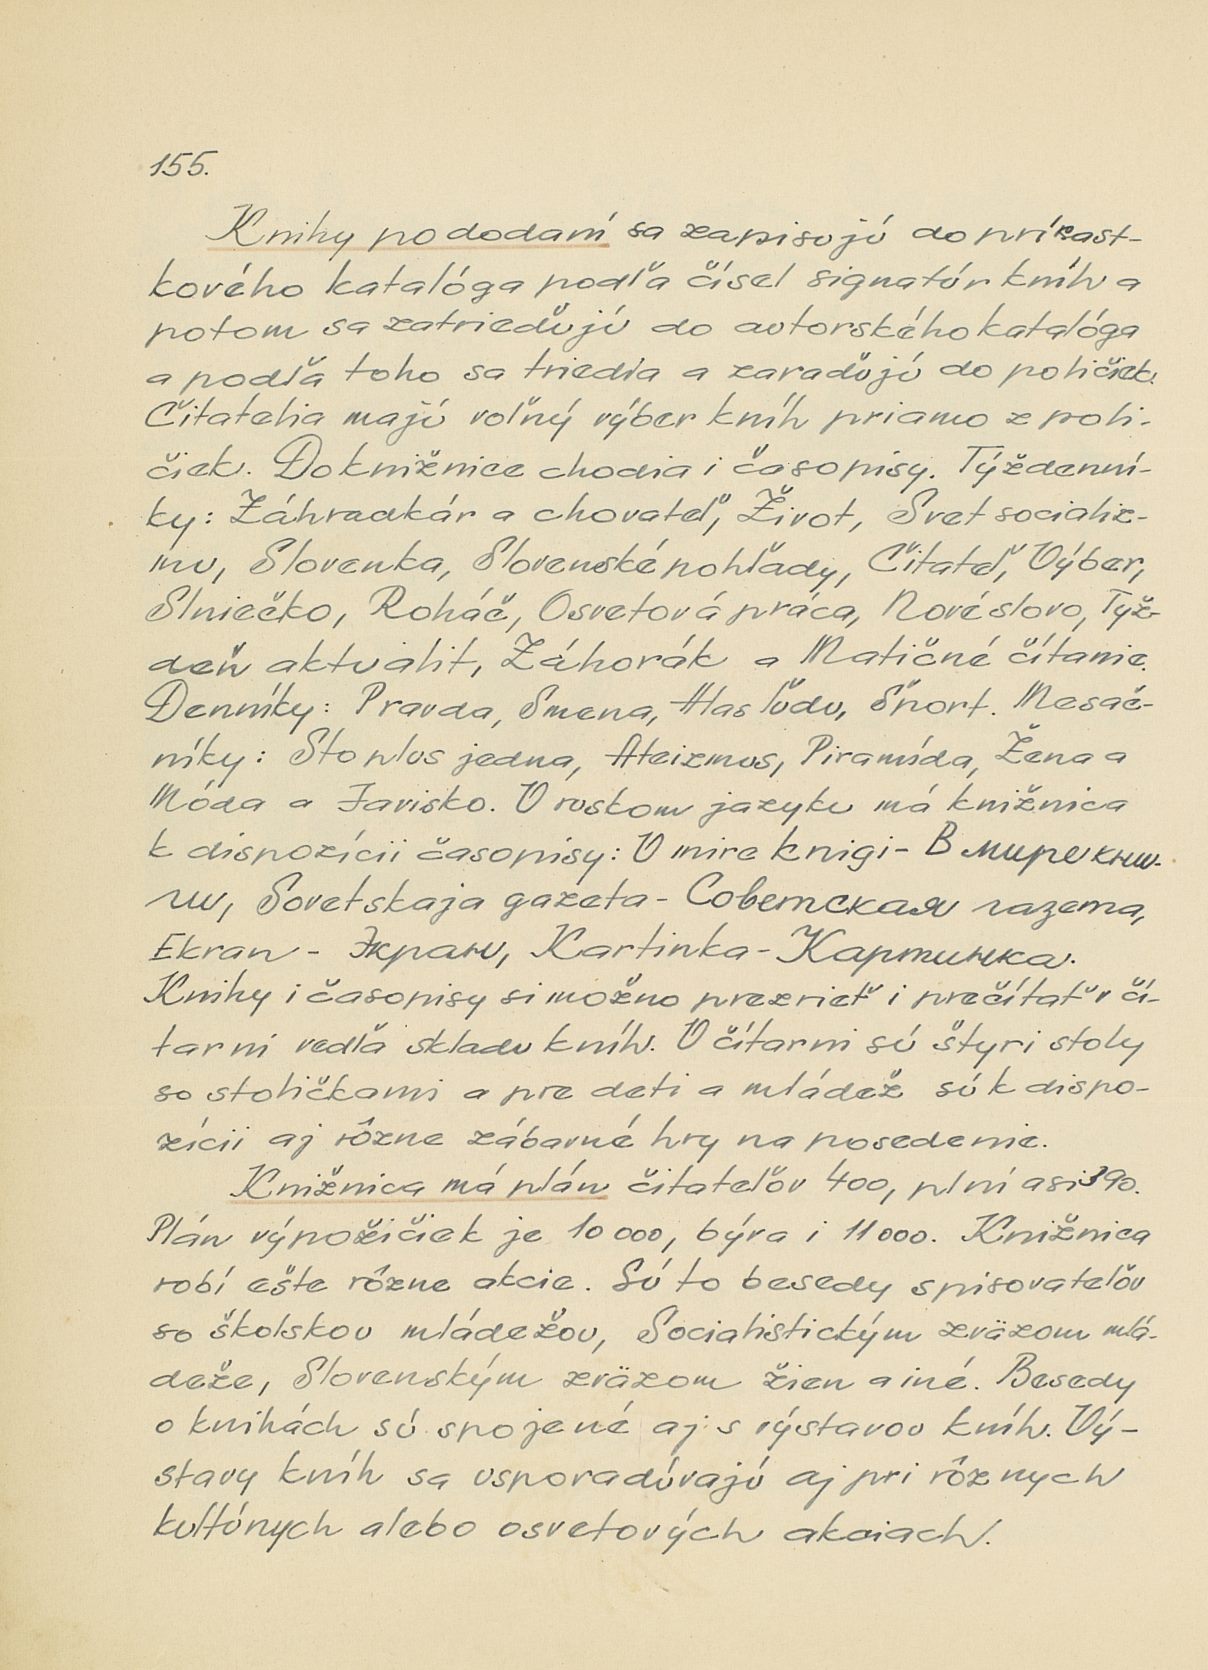 155.
Knihy po dodaní sa zapisujú do prírast-
kového katalóga podľa čísel signatúr kníh a
potom sa zatrieďujú do autorského katalóga
a podľa toho sa triedia a zaraďujú do poličiek.
Čitatelia majú voľný výber kníh priamo z poli-
čiek. Do knižnice chodia i časopisy. Týždenní-
ky: Záhradkár a chovateľ, Život, Svet socializ-
mu, Slovenka, Slovenské pohľady, Čitateľ, Výber,
Slniečko, Roháč, Osvetová práca, Nové slovo, Týž-
deň aktualít, Záhorák a Matičné čítanie.
Denníky: Pravda, Smena, Hlas ľudu, Šport. Mesač-
níky: Sto plus jedna, Ateizmus, Piramída, Žena a
Móda a Javisko. V ruskom jazyku má knižnica
k dispozícii časopisy: V mire knigi - В мире кни-
ги, Sovetskaja gazeta - Советская газета,
Ekran - Экран, Kartinka - Картинка.
Knihy i časopisy si možno prezrieť i prečítať v čí-
tarni vedľa skladu kníh. V čítarni sú štyri stoly
so stoličkami a pre deti a mládež sú k dispo-
zícii aj rôzne zábavné hry na posedenie.
Knižnica má plán čitateľov 400, plní asi 390.
Plán výpožičiek je 10 000, býva i 11 000. Knižnica
robí ešte rôzne akcie. Sú to besedy spisovateľov
so školskou mládežou, Socialistickým zväzom mlá-
deže, Slovenským zväzom žien a iné. Besedy
o knihách sú spojené aj s výstavou kníh. Vý-
stavy kníh sa usporadúvajú aj pri rôznych
kultúnych alebo osvetových akciach.